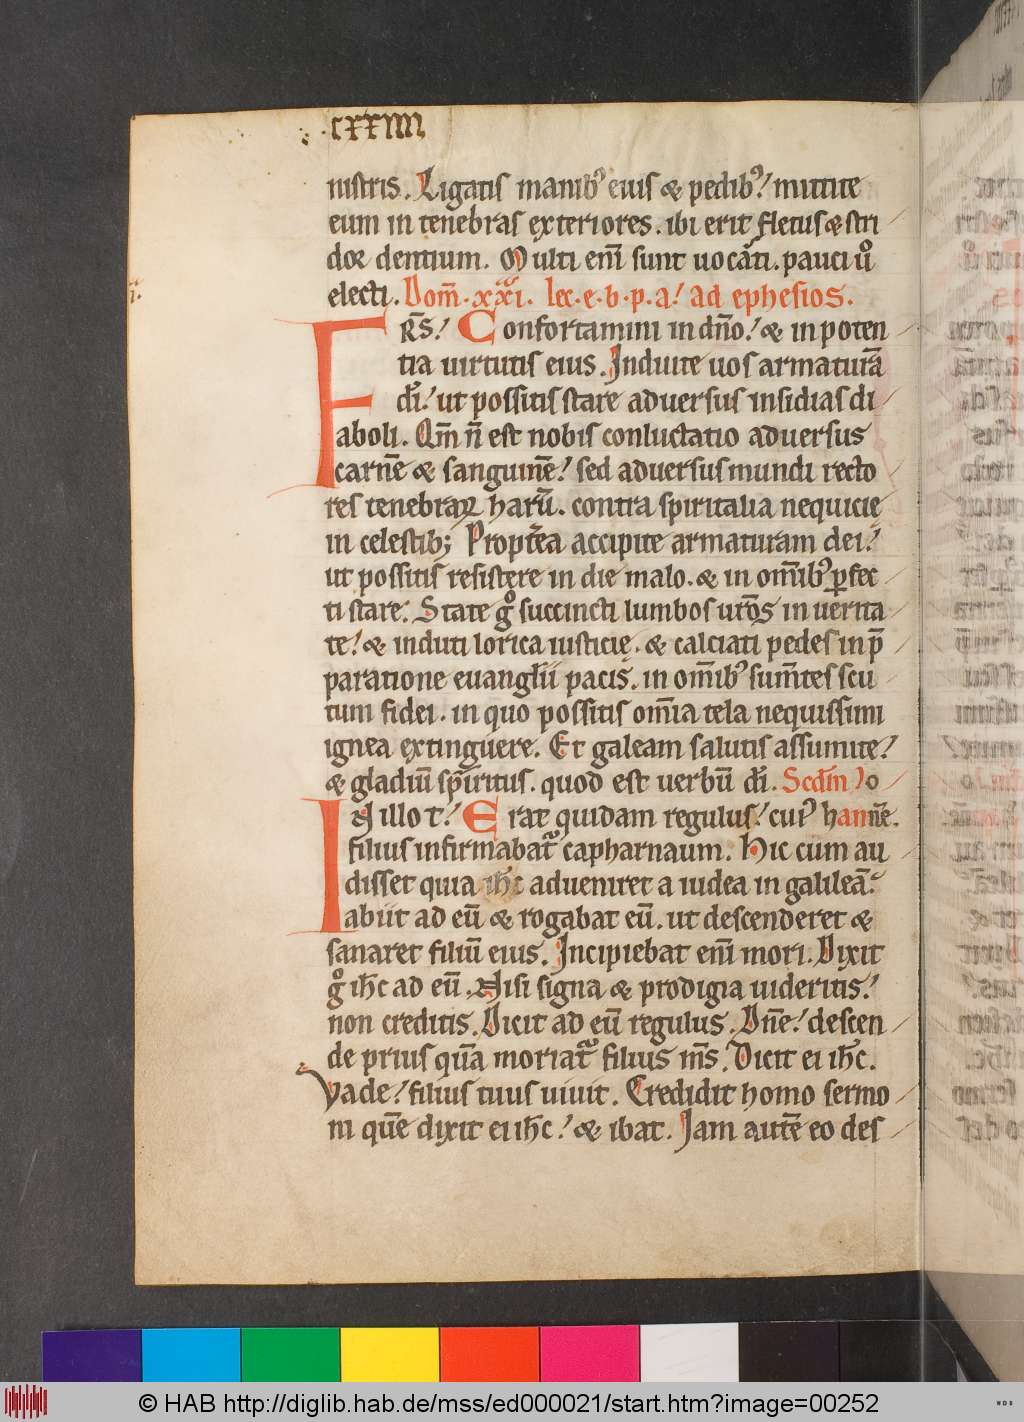 .cxxiiii
nistris. Ligatis manibꝰ eius & pedibꝰ! mittite
eum in tenebras exteriores. ibi erit fletus & stri
dor dentium. Multi eni̅ sunt uocati. pauci uͦ
electi. Dom̅. xxi. lec. e. b. p. a! ad ephesios.
FR̅s! Confortamini in dn̅o! & in poten
tia uirtutis eius. Induite uos armatura̅
di̅! ut possitis stare aduersus insidias di
aboli. Qm̅ n̅ est nobis conluctatio aduersus
carne̅ & sanguine̅! sed aduersus mundi recto
res tenebraꝝ haru̅. contra spiritalia nequicię
in celestib; Propt̅ea accipite armaturam dei!
ut possitis resistere in die malo. & in om̅ibꝰ ꝑfec
ti stare. State gͦ succincti lumbos ur̅os in uerita
te! & induti lorica iusticię. & calciati pedes in p̅
paratione euangl̅ii pacis. in om̅ibꝰ sum̅tes scu
tum fidei. in quo possitis om̅ia tela nequissimi
ignea extinguere. Et galeam salutis assumite!
& gladiu̅ sp̅iritus. quod est uerbu̅ di̅. Scd̅m Io
IN illo t! Erat quidam regulus! cuiꝰ hanne̅.
filius infirmabat᷑ capharnaum. Hic cum au
disset quia ih̅c adueniret a iudea in galilea̅!
abiit ad eu̅ & rogabat eu̅. ut descenderet &
sanaret filiu̅ eius. Incipiebat eni̅ mori. Dixit
gͦ ih̅c ad eu̅. Nisi signa & prodigia uideritis!
non creditis. Dicit ad eu̅ regulus. Dn̅e! descen
de prius qua̅ moriat᷑ filius m̅s. Dicit ei ih̅c.
Vade! filius tuus uiuit. Credidit homo sermo
ni que̅ dixit ei ih̅c! & ibat. Iam aute̅ eo des
© HAB http://diglib.hab.de/mss/ed000021/start.htm?image=00252